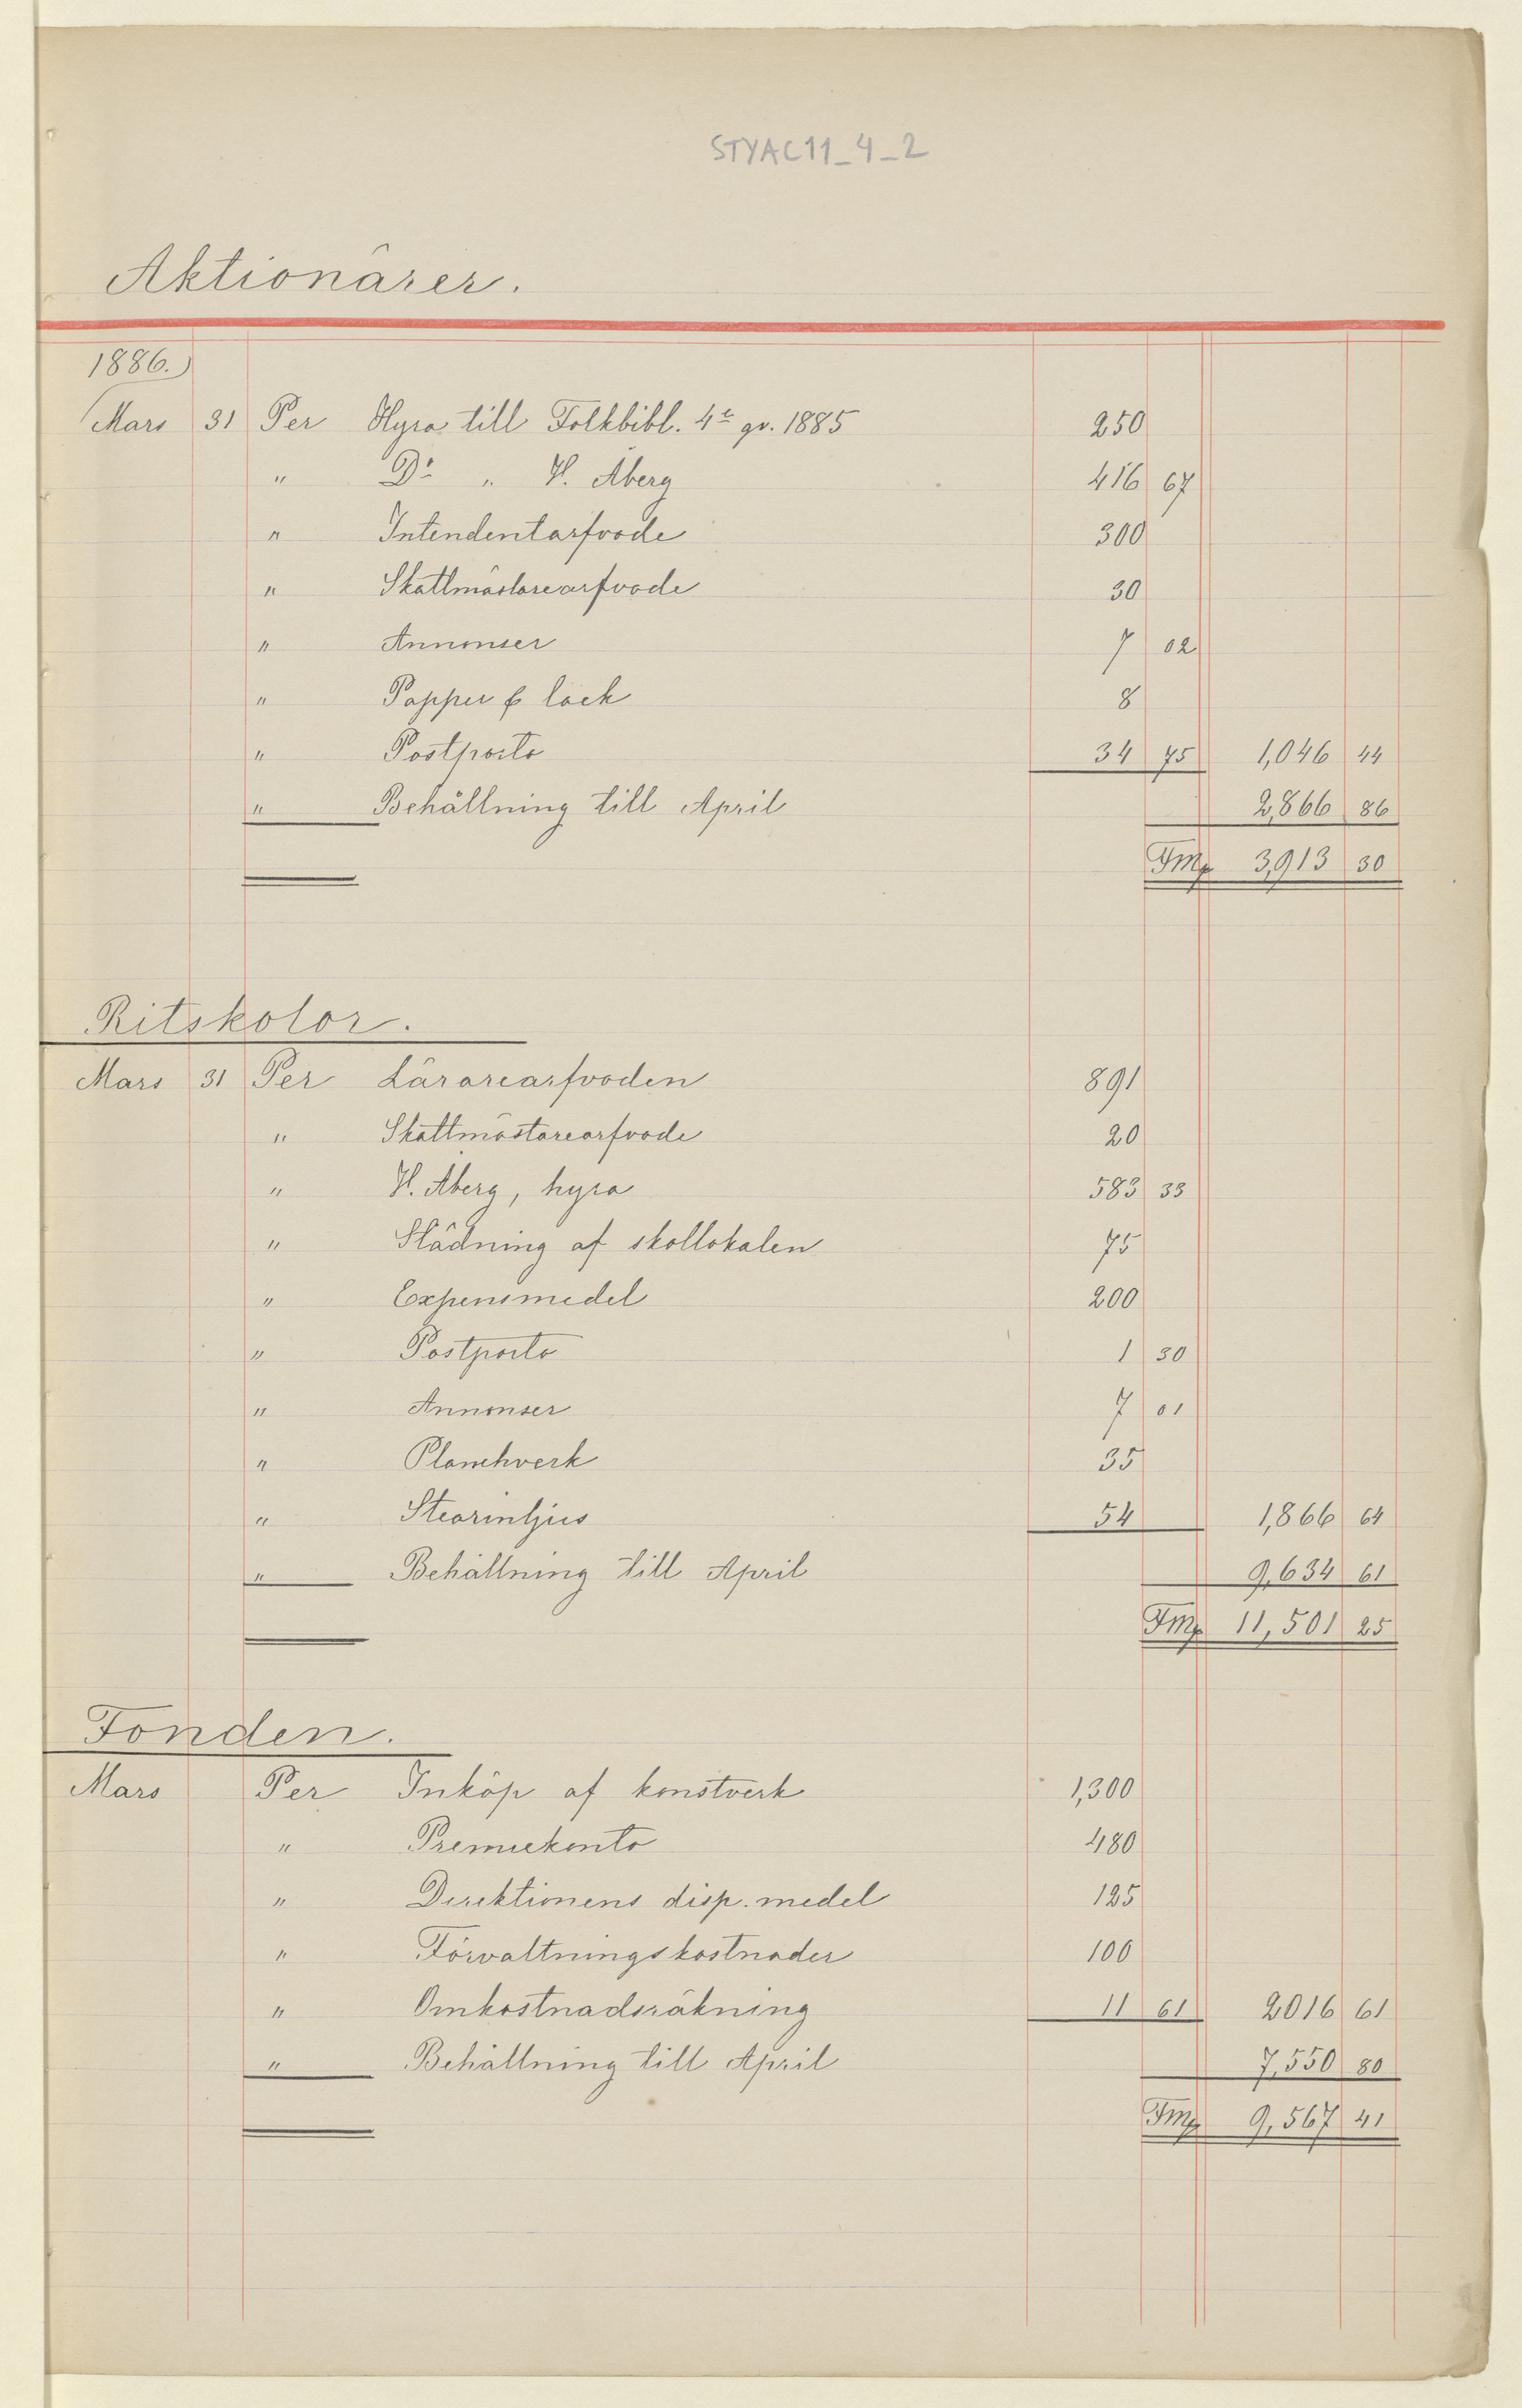 STYAC11_4_2
Aktionärer.
1886.
Mars 31 Per Hyra till Folkbibl. 4e qv. 1885 250
" Do " H. Åberg 416 67
" Intendentarfvode 300
" Skattmästarearfvode 30
" Annonser 7 02
" Papper & lack 8
" Postporto 34 75 1,046 44
" Behållning till April 2,866 86
Fmk 3,913 30
Ritskolor.
Mars 31 Per Lärarearfvoden 891
" Skattmästarearfvode 20
" H. Åberg, hyra 583 33
" Städning af skollokalen 75
" Expensmedel 200
" Postporto 1 30
" Annonser 7 01
" Planchverk 35
" Stearinljus 54 1,866 64
" Behållning till April 9,634 61
Fmk 11,501 25
Fonden.
Mars Per Inköp af konstverk 1,300
" Premiekonto 480
" Direktionens disp. medel 125
" Förvaltningskostnader 100
" Omkostnadsräkning 11 61 2016 61
" Behållning till April 7,550 80
Fmk 9,567 41